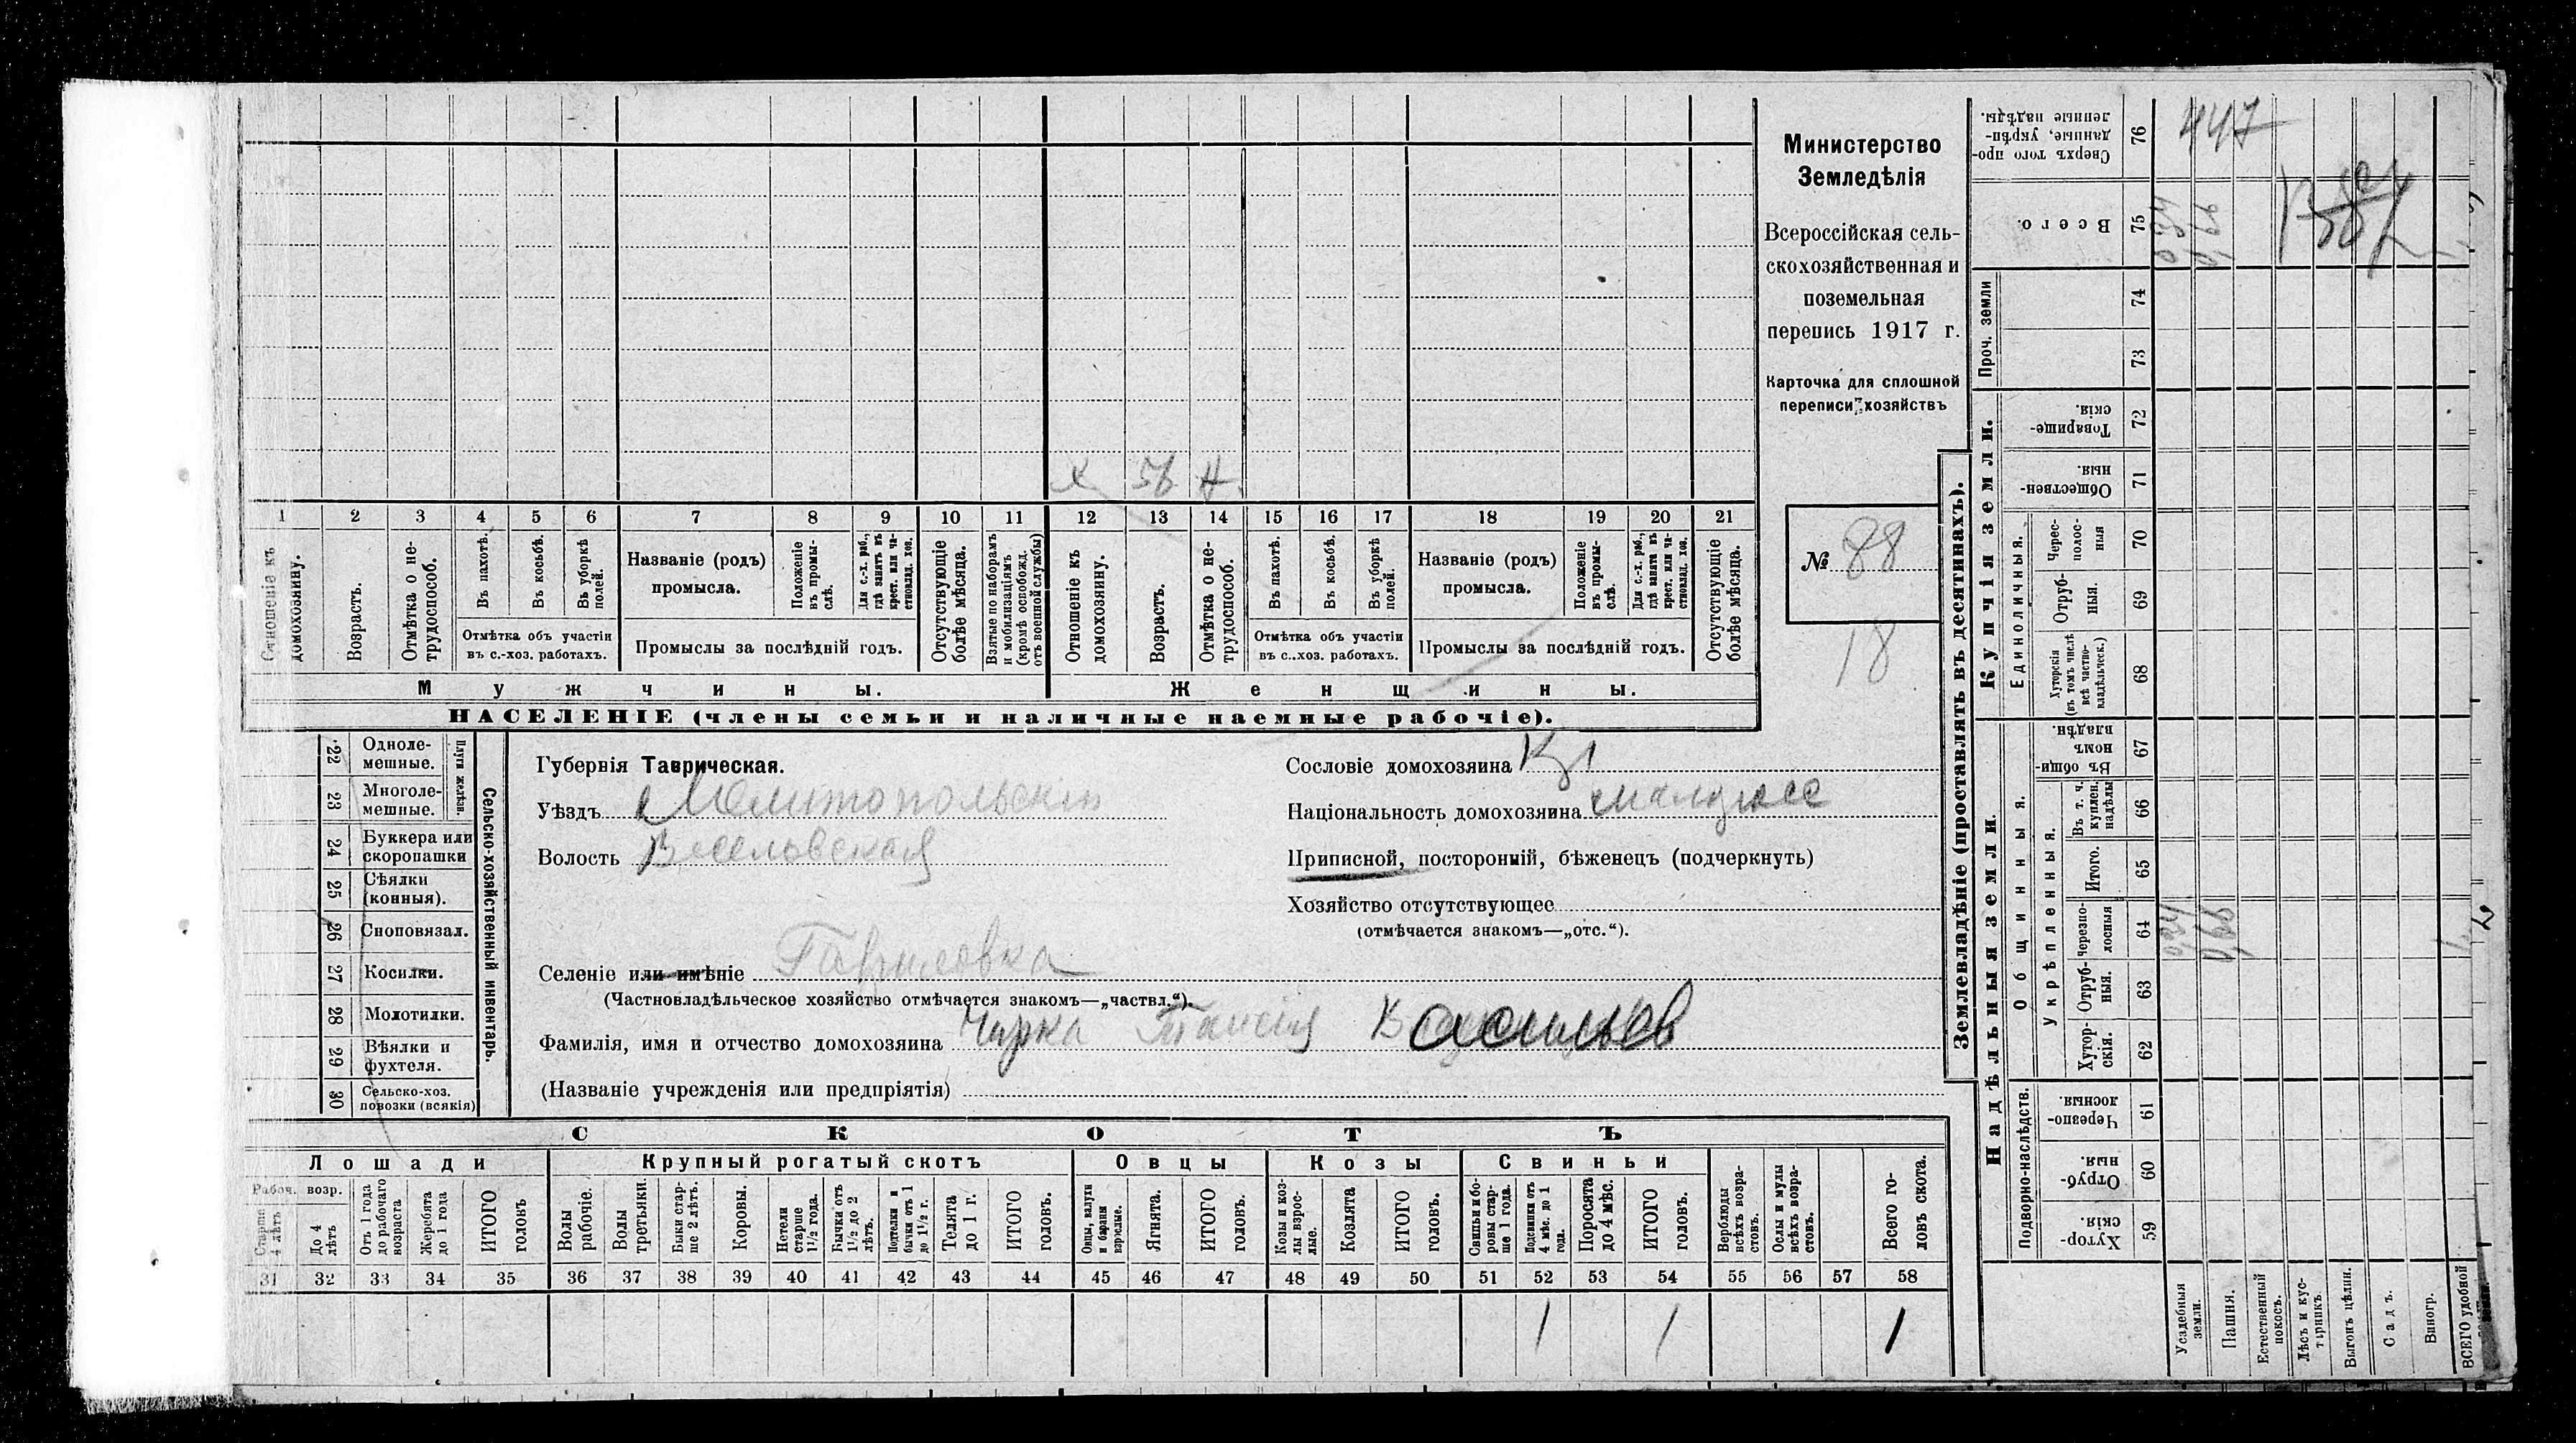 х 56 н
1 2 3 4 5 6 7 8 9 10 11 12 13 14 15 16 17 18 19 20 21
Отношеніе къ домохозяину.
Возрастъ.
Отмѣтка о не-
трудоспособ.
Въ пахотѣ.
Въ косьбѣ.
Въ уборкѣ
полей.
Отмѣтка объ участіи
въ с.-хоз. работахъ.
Названіе (родъ)
промысла.
Положеніе
въ промы-
слѣ.
Для с.-х. раб.,
гдѣ занятъ въ
крест. или ча-
стновлад. хоз.
Промыслы за послѣдній годъ.
Отсутствующіе
болѣе мѣсяца.
Взятые по наборамъ
и мобилизаціямъ
(кромѣ освобожд.
отъ военной службы)
Отношеніе къ
домохозяину.
Возрастъ.
Отмѣтка о не-
трудоспособ.
Въ пахотѣ.
Въ косьбѣ.
Въ уборкѣ
полей.
Отмѣтка объ участіи
въ с..хоз. работахъ.
Названіе (родъ)
промысла.
Положеніе
въ промы-
слѣ.
Для с.-х. раб.,
гдѣ занята въ
крест. или ча-
стновлад. хоз.
Промыслы за послѣдній годъ.
Отсутствующіе
болѣе мѣсяца.
Мужчины.
Женщины.
НАСЕЛЕНІЕ (члены семьи и наличные наемные рабочіе).
Министерство
Земледѣлія
Всероссійская сель-
скохозяйственная и
поземельная
перепись 1917 г.
Карточка для сплошной
переписи хозяйствъ
№ 88
18
22 Одноле-
мешные.
23 Многоле-
мешные.
Плуги желѣзн.
24 Буккера или
скоропашки
25 Сѣялки
(конныя).
26 Сноповязал.
27 Косилки.
28 Молотилки.
29 Вѣялки и
фухтеля.
30 Сельско-хоз.
повозки (всякія)
Сельско-хозяйственный инвентарь.
Губернія Таврическая.
Уѣздъ Мелитопольскій
Волость Веселовская
Селеніе или имѣніе Гавриловка
(Частновладѣльческое хозяйство отмѣчается знакомъ—„частвл.“).
Фамилія, имя и отчество домохозяина Чирка Таисія Васильев
(Названіе учрежденія или предпріятія)
Сословіе домохозяина Кр
Національность домохозяина малорос
Приписной, посторонній, бѣженецъ (подчеркнуть)
Хозяйство отсутствующее
(отмѣчается знакомъ—„отс.“).
СКОТЪ
Лошади
Крупный рогатый скотъ
Овцы
Козы
Свиньи
Рабоч. возр.
Старше
4 лѣтъ
До 4
лѣтъ
Отъ 1 года
до рабочаго
возраста
Жеребята
до 1 года
ИТОГО
головъ
Волы
рабочіе.
Волы
третьяки.
Быки стар-
ше 2 лѣтъ.
Коровы.
Нетели
старше
1½ года.
Бычки отъ
1½ до 2
лѣтъ.
Подтелки и
бычки отъ 1
до 1½ г.
Телята
до 1 г.
ИТОГО
головъ.
Овцы, валухи
и бараны
взрослые.
Ягнята.
ИТОГО
головъ.
Козы и коз-
лы взрос-
лые.
Козлята
ИТОГО
головъ.
Свиньи и бо-
ровы стар-
ше 1 года.
Подсвинки отъ
4 мѣс. до 1
года.
Поросята
до 4 мѣс.
ИТОГО
головъ.
Верблюды
всѣхъ возра-
стовъ.
Ослы и мулы
всѣхъ возра-
стовъ.
Всего го-
ловъ скота.
31 32 33 34 35 36 37 38 39 40 41 42 43 44 45 46 47 48 49 50 51 52 53 54 55 56 57 58
1 1 1
Землевладѣніе (проставлять въ десятинахъ).
Купчія земли.
Надѣльныя земли.
Сверхъ того про-
данные, укрѣп-
ленные надѣлы.
76
447
Всего.
75
Проч. земли
74
73
Товарище-
скія.
72
Обществен-
ныя.
71
Единоличныя.
Черес-
полос-
ныя
70
Отруб-
ныя.
69
Хуторскія
(въ томъ числѣ
всѣ частно-
владѣльческ.)
68
Общинныя.
Въ общи-
номъ
владѣн.
67
Укрѣпленныя.
Въ т. ч.
куплен.
надѣлы
66
Итого.
65
Черезпо-
лосныя
64
Отруб-
ныя.
63
Хутор-
скія.
62
Подворно-наслѣдств.
Черезпо-
лосныя.
61
Отруб-
ныя.
60
Хутор-
скія.
59
Усадебныя
земли.
Пашня.
Естественный
покосъ.
Лѣсъ и кус-
тарникъ.
Выгонъ цѣлин.
Садъ.
Виногр.
ВСЕГО удобной